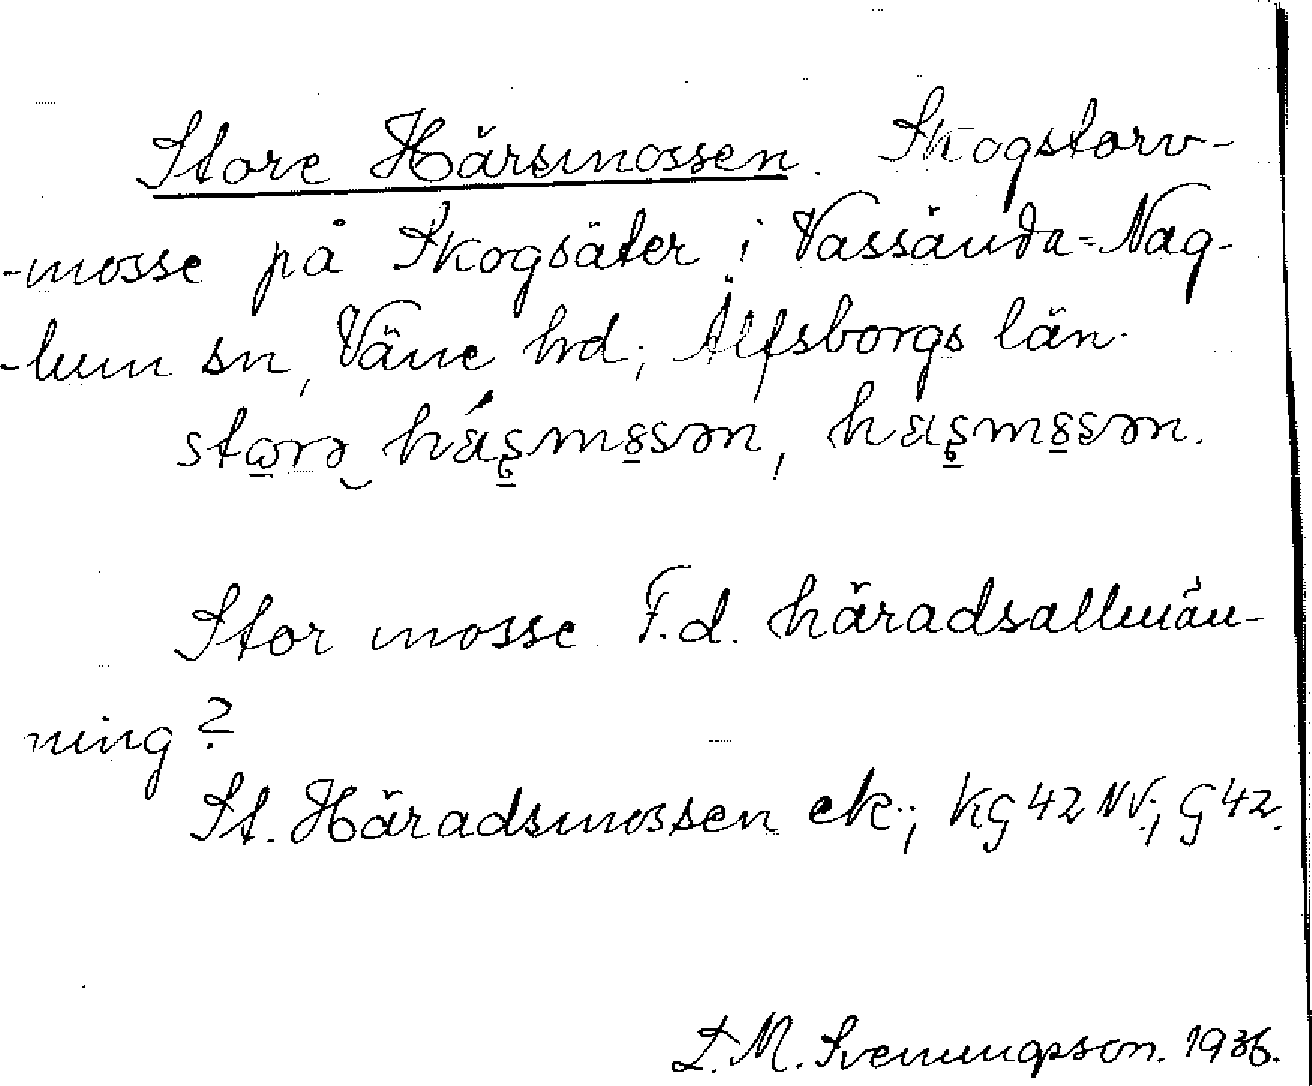 Store Härsmossen. Skogstorv-
-mosse på Skogsäter i Vassända-Nag-
-lum sn, Väne hd, Älfsborgs län.
Stor mosse. F.d. häradsallmän-
ning?
St. Häradsmossen ek.; KG 42 NV.; G 42.
L. M. Svenungsson. 1936.